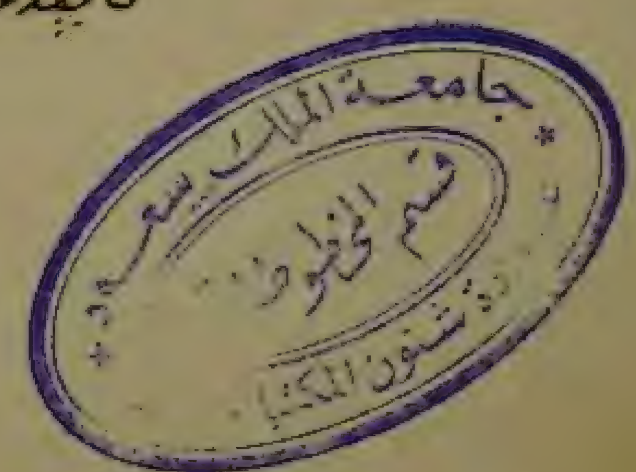 جامعة الملك سعود
قسم المخطوطات
شئون المكتبا